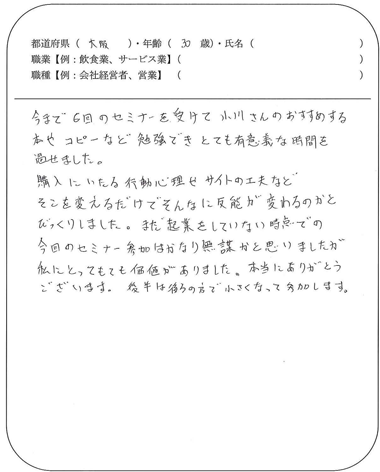 都道府県（ 大阪 ）・年齢（ 30 歳）・氏名（ ）
職業【例：飲食業、サービス業】（ ）
職種【例：会社経営者、営業】（ ）
今まで6回のセミナーを受けて小川さんのおすすめする
本やコピーなど勉強でき とても有意義な時間を
過せました。
購入にいたる行動心理やサイトの工夫など
そこを変えるだけでそんなに反能が変わるのかと
びっくりしました。まだ起業をしていない時点での
今回のセミナー参加はかなり無謀かと思いましたが
私にとってもても価値がありました。本当にありがとう
ございます。後半は後ろの方で小さくなって参加します。